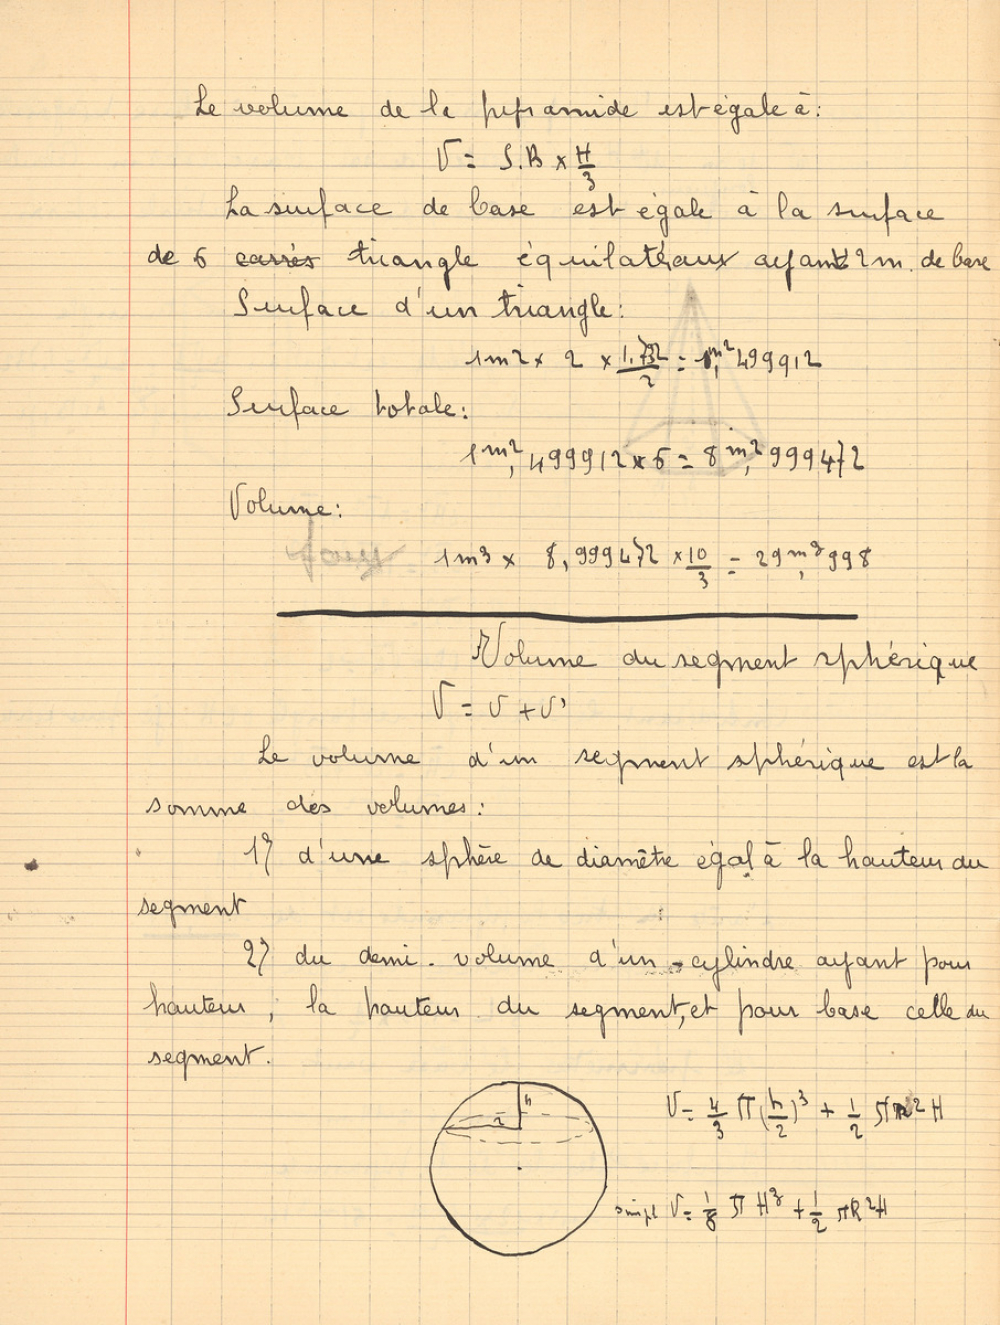 Le volume de la pyramide est égale à:
V = S.B × H/3
La surface de base est égale à la surface
de 6 carrés triangle équilatéraux ayant 2m. de base
Surface d'un triangle:
1m2 × 2 × 1,732/2 = 1m²,499912
Surface totale:
1m²,499912 × 6 = 8m²,999472
Volume:
1m3 × 8,999472 × 10/3 = 29m3,998
Volume du segment sphérique
V = v + v'
Le volume d'un segment sphérique est la
somme des volumes:
1°) d'une sphère de diamètre égal à la hauteur du
segment
2°) du demi-volume d'un cylindre ayant pour
hauteur, la hauteur du segment, et pour base celle du
segment.
h
r
V = 4/3 π (h/2)³ + 1/2 πR²H
simpl V = 1/6 π H³ + 1/2 πR²H